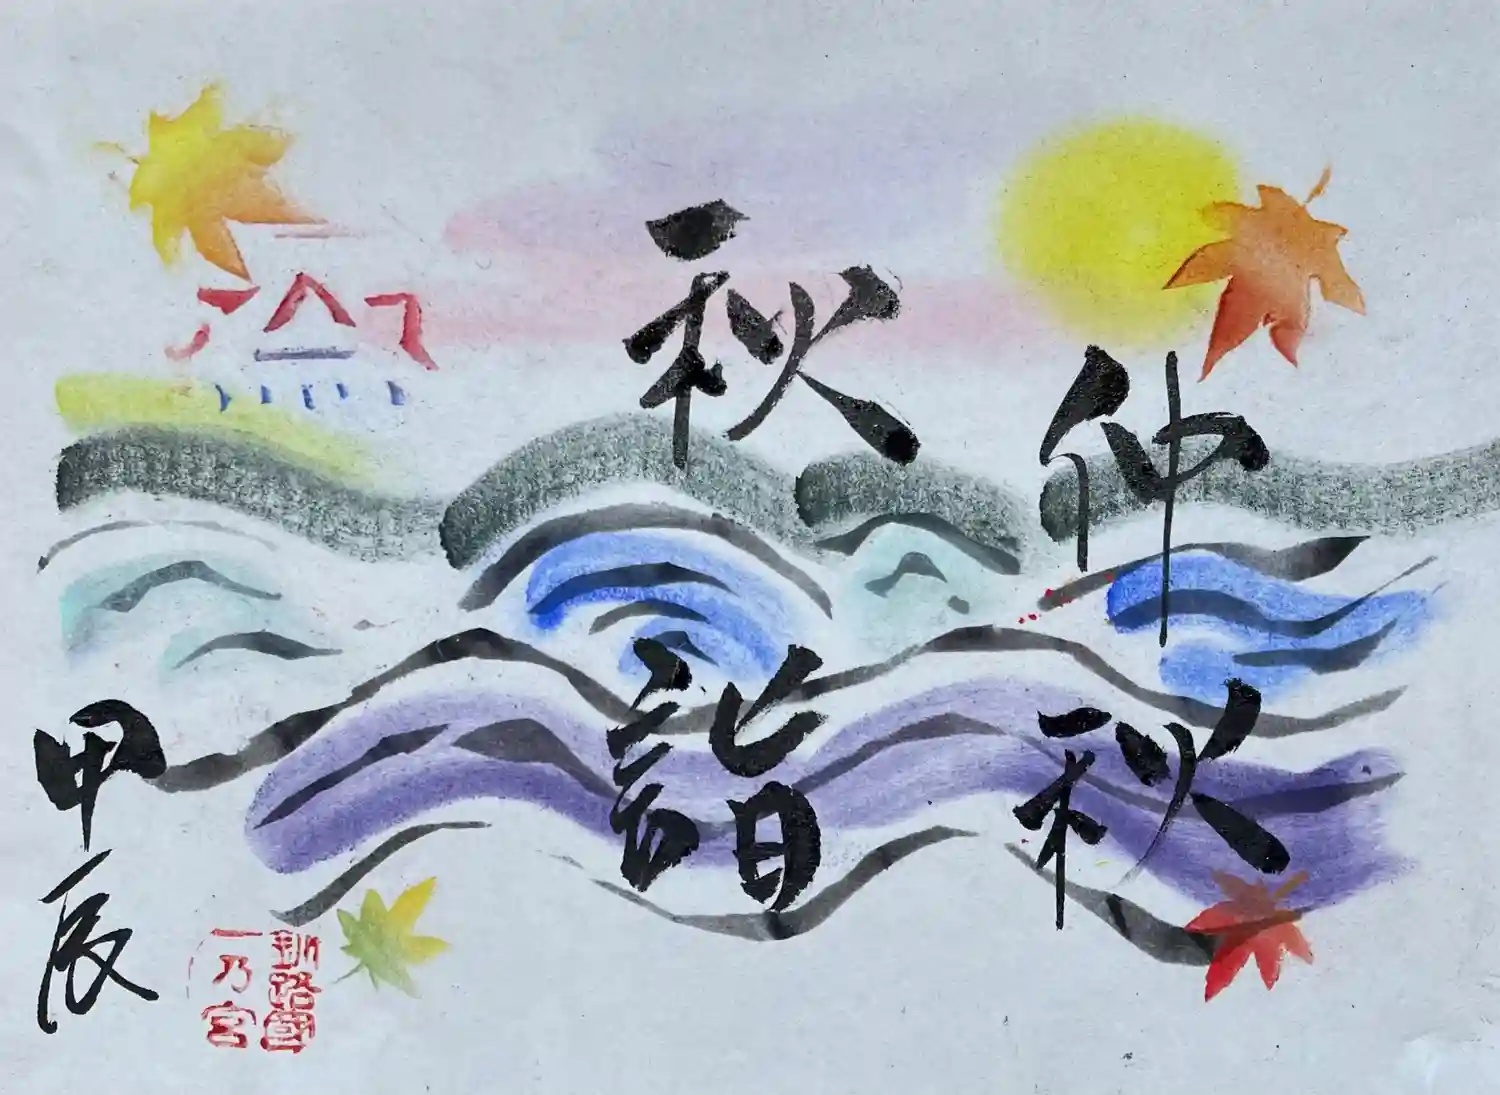 仲秋
秋詣
甲辰
釧路國
一乃宮